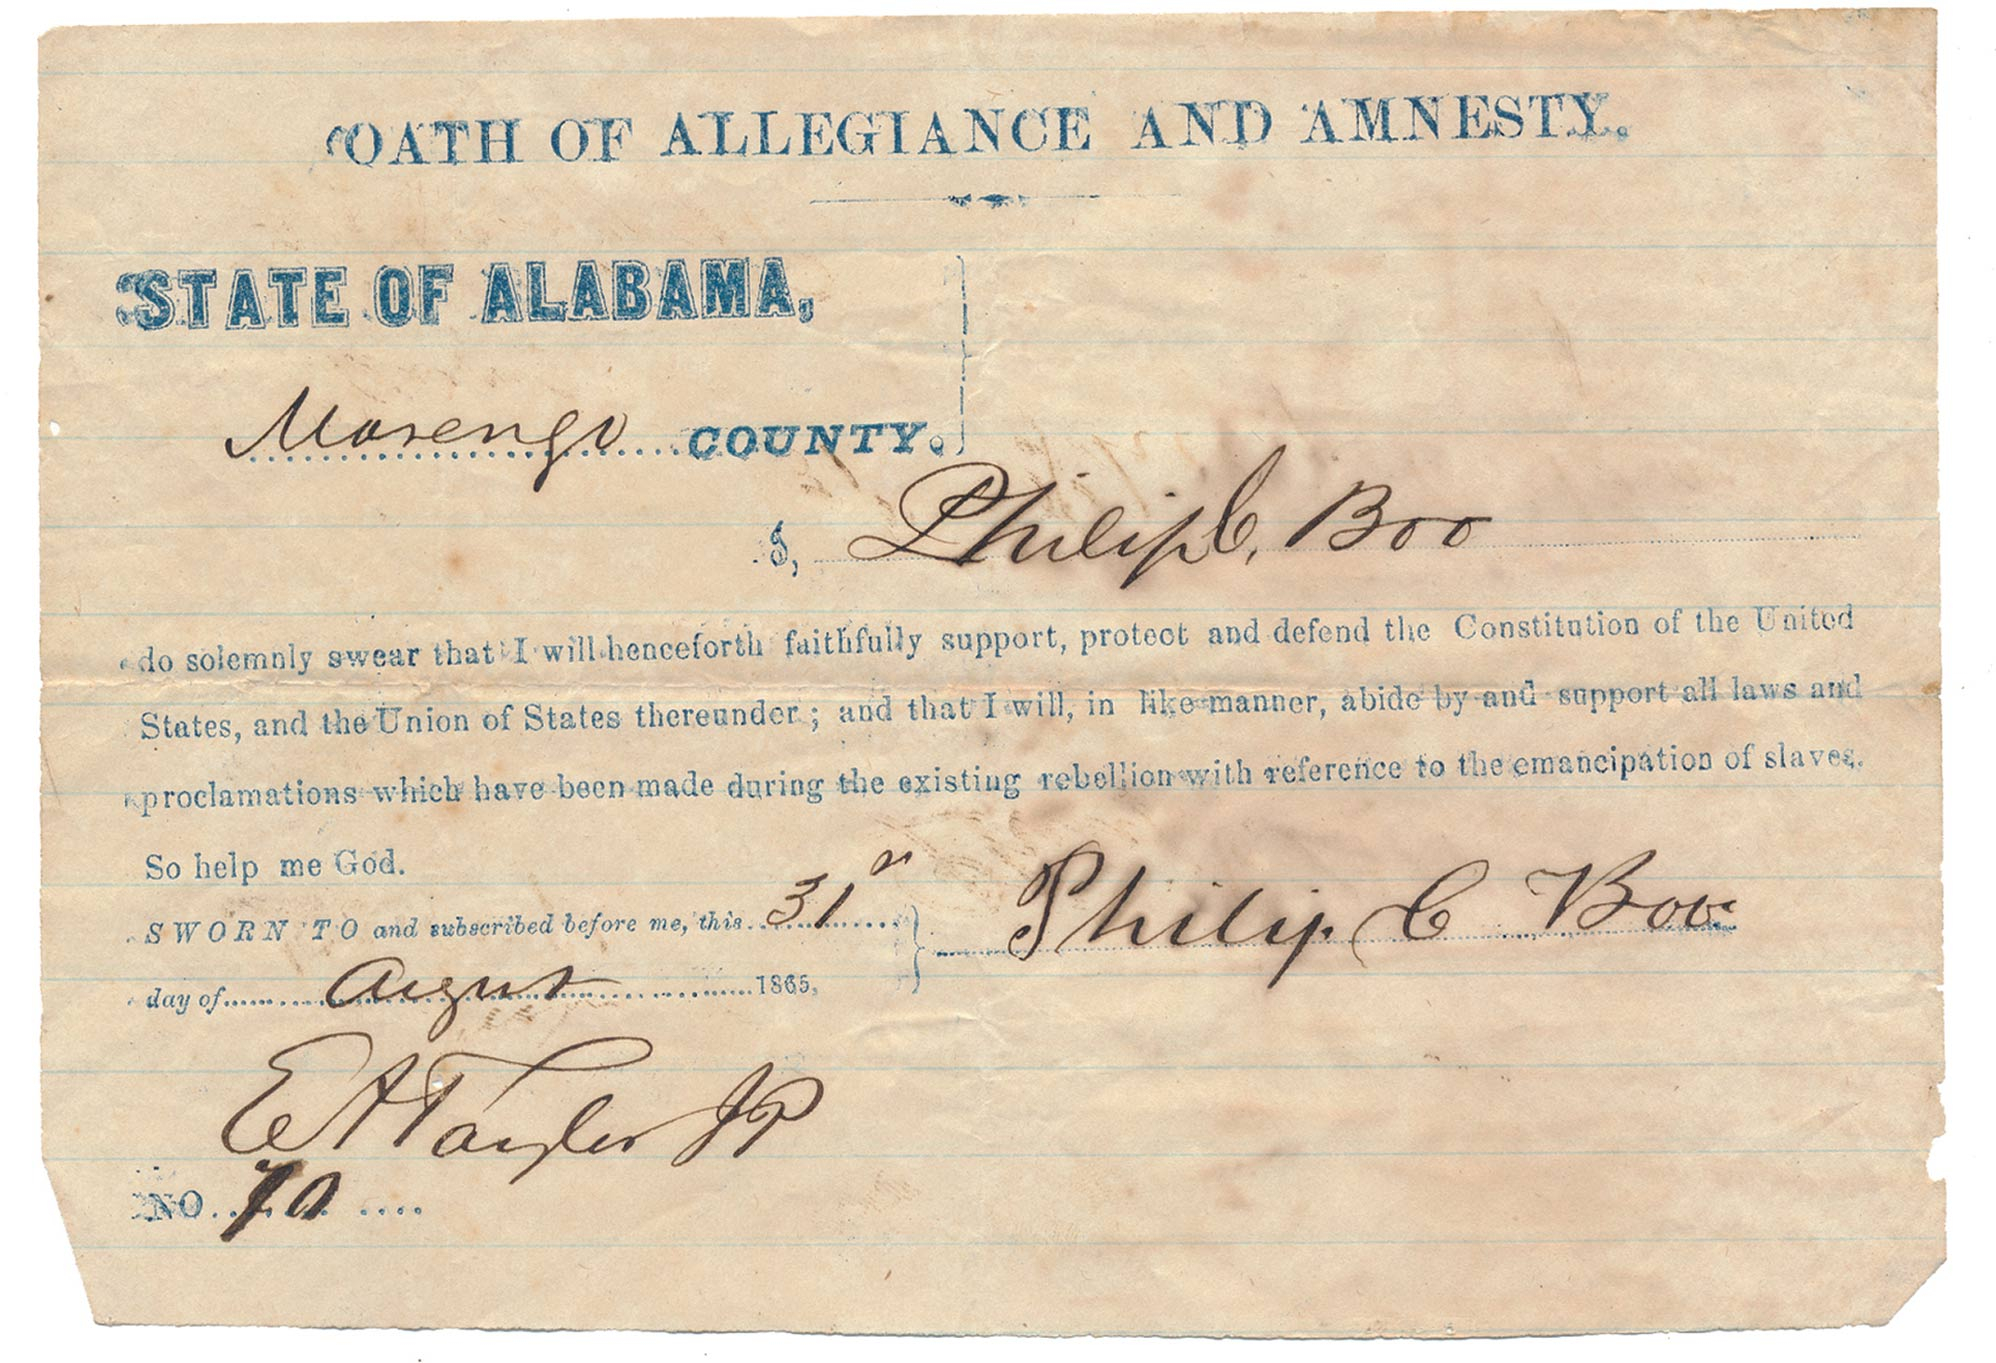 OATH OF ALLEGIANCE AND AMNESTY.
STATE OF ALABAMA,
Marengo COUNTY.
I, Philip C. Boo
do solemnly swear that I will henceforth faithfully support, protect and defend the Constitution of the United
States, and the Union of States thereunder; and that I will, in like manner, abide by and support all laws and
proclamations which have been made during the existing rebellion with reference to the emancipation of slaves.
So help me God.
SWORN TO and subscribed before me, this 31
day of August 1865,
Philip C Boo
E A Taylor JP
NO. 70